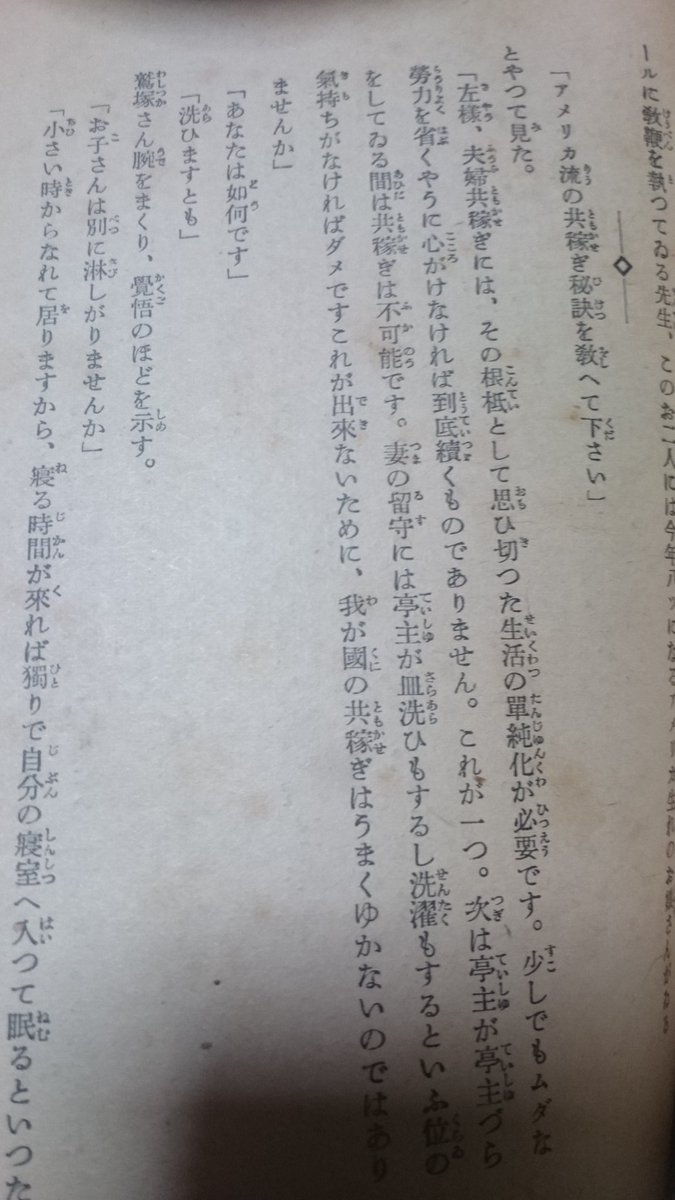 ールに教鞭を執つてゐる先生、このお二人には今年
「アメリカ流の共稼ぎ秘訣を教へて下さい」
とやつて見た。
「左様、夫婦共稼ぎには、その根柢として思ひ切つた生活の單純化が必要です。少しでもムダな
勞力を省くやうに心がけなければ到底續くものでありません。これが一つ。次は亭主が亭主づら
をしてゐる間は共稼ぎは不可能です。妻の留守には亭主が皿洗ひもするし洗濯もするといふ位の
氣持ちがなければダメですこれが出來ないために、我が國の共稼ぎはうまくゆかないのではあり
ませんか」
「あなたは如何です」
「洗ひますとも」
鷲塚さん腕をまくり、覺悟のほどを示す。
「お子さんは別に淋しがりませんか」
「小さい時からなれて居りますから、寢る時間が來れば獨りで自分の寢室へ入つて眠るといつた